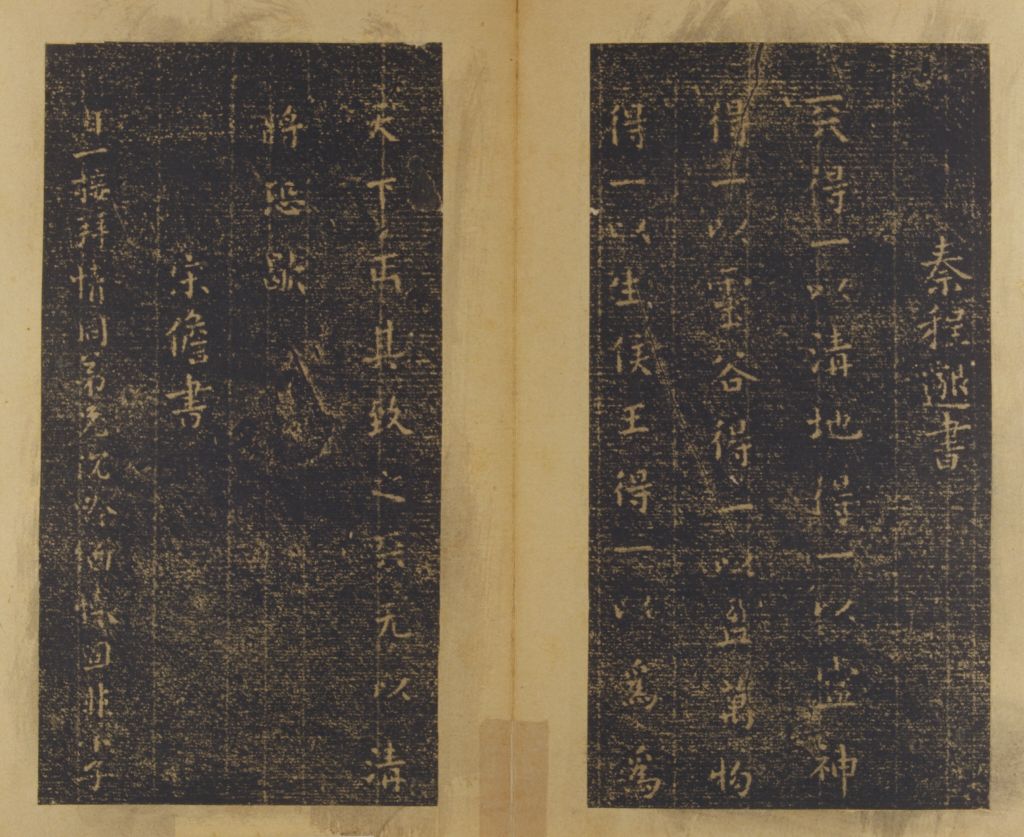 秦程邈書
天得一以清地得一以寍神
得一以靈谷得一以盈萬物
得一以生侯王得一以為為
天下正其致之天无以清
將恐歇
宋儋書
自一接拜情同弟兄況 衘悵固非小子